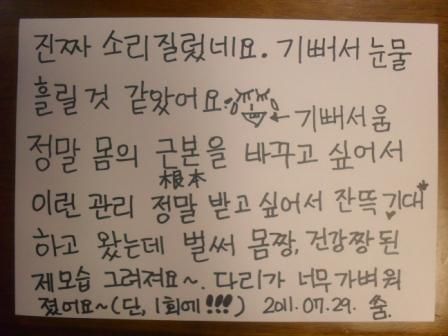 진짜 소리질렀네요. 기뻐서 눈물
흘릴것 같았어요 ← 기뻐서움
정말 몸의 근본을 바꾸고 싶어서
根本
이런 관리 정말 받고싶어서 잔뜩기대
하고 왔는데 벌써 몸짱, 건강짱된
제모습 그려져요~. 다리가 너무가벼워
졌어요~(단, 1회에!!!) 2011.07.29.